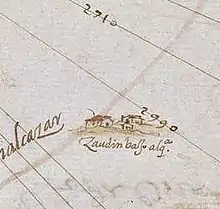 2910
2990
nalcazar
Zaudin baxo alqª